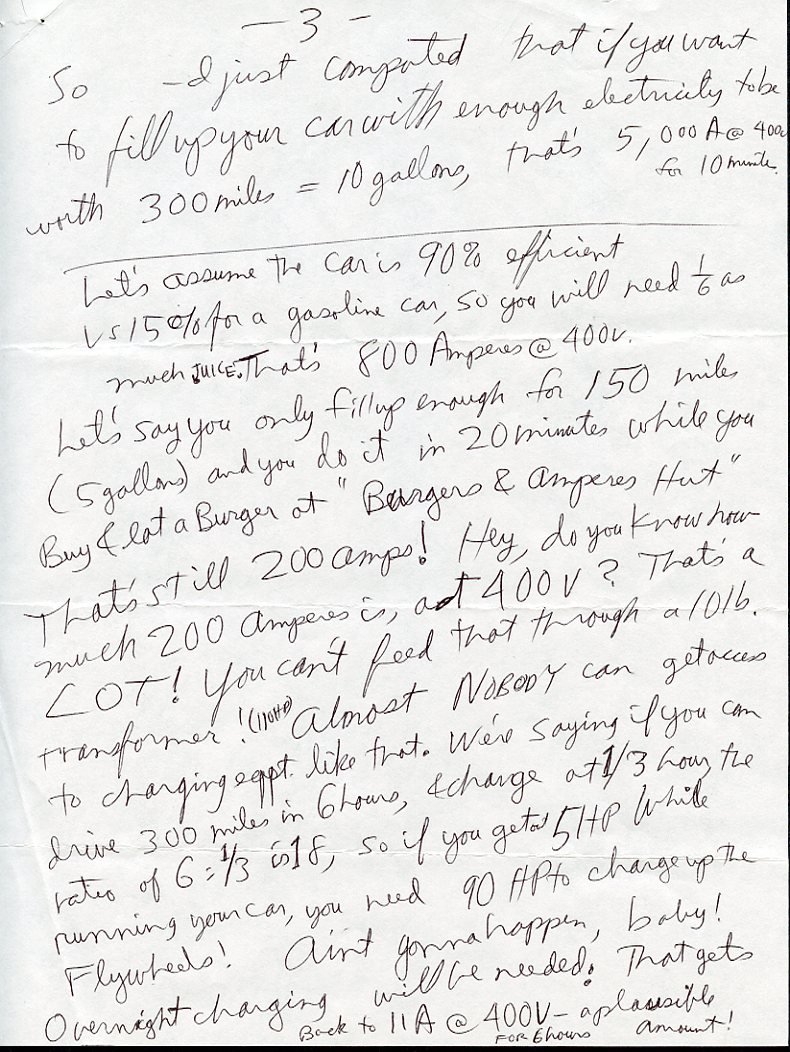 — 3 —
So — I just computed that if you want
to fill up your car with enough electricity to be
worth 300 miles = 10 gallons, that's 5,000 A @ 400v
for 10 minute.
Let's assume the car is 90% efficient
vs 15% for a gasoline car, so you will need 1/6 as
much JUICE. That's 800 Amperes @ 400v.
Let's say you only fill up enough for 150 miles
(5 gallons) and you do it in 20 minutes while you
Buy & Eat a Burger at "Burgers & Amperes Hut"
That's still 200 amps! Hey, do you know how
much 200 Amperes is, at 400V? That's a
LOT! You can't feed that through a 10 lb.
transformer! (110HP) Almost NOBODY can get access
to charging eqpt. like that. We're saying if you can
drive 300 miles in 6 hours, & charge at 1/3 hour, the
ratio of 6 : 1/3 is 18, so if you get 5 HP while
running your car, you need 90 HP to charge up the
Flywheels! Aint gonna happen, baby!
Overnight charging will be needed. That gets
Back to 11A @ 400V — a plausible amount!
FOR 6 hours